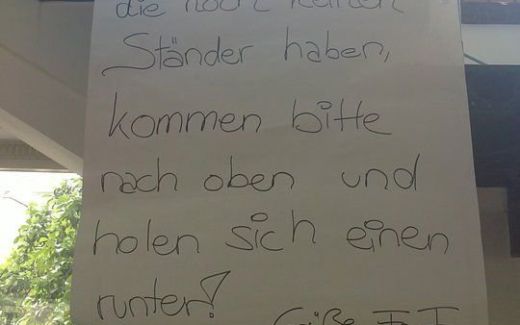 die noch keinen
Ständer haben,
kommen bitte
nach oben und
holen sich einen
runter!